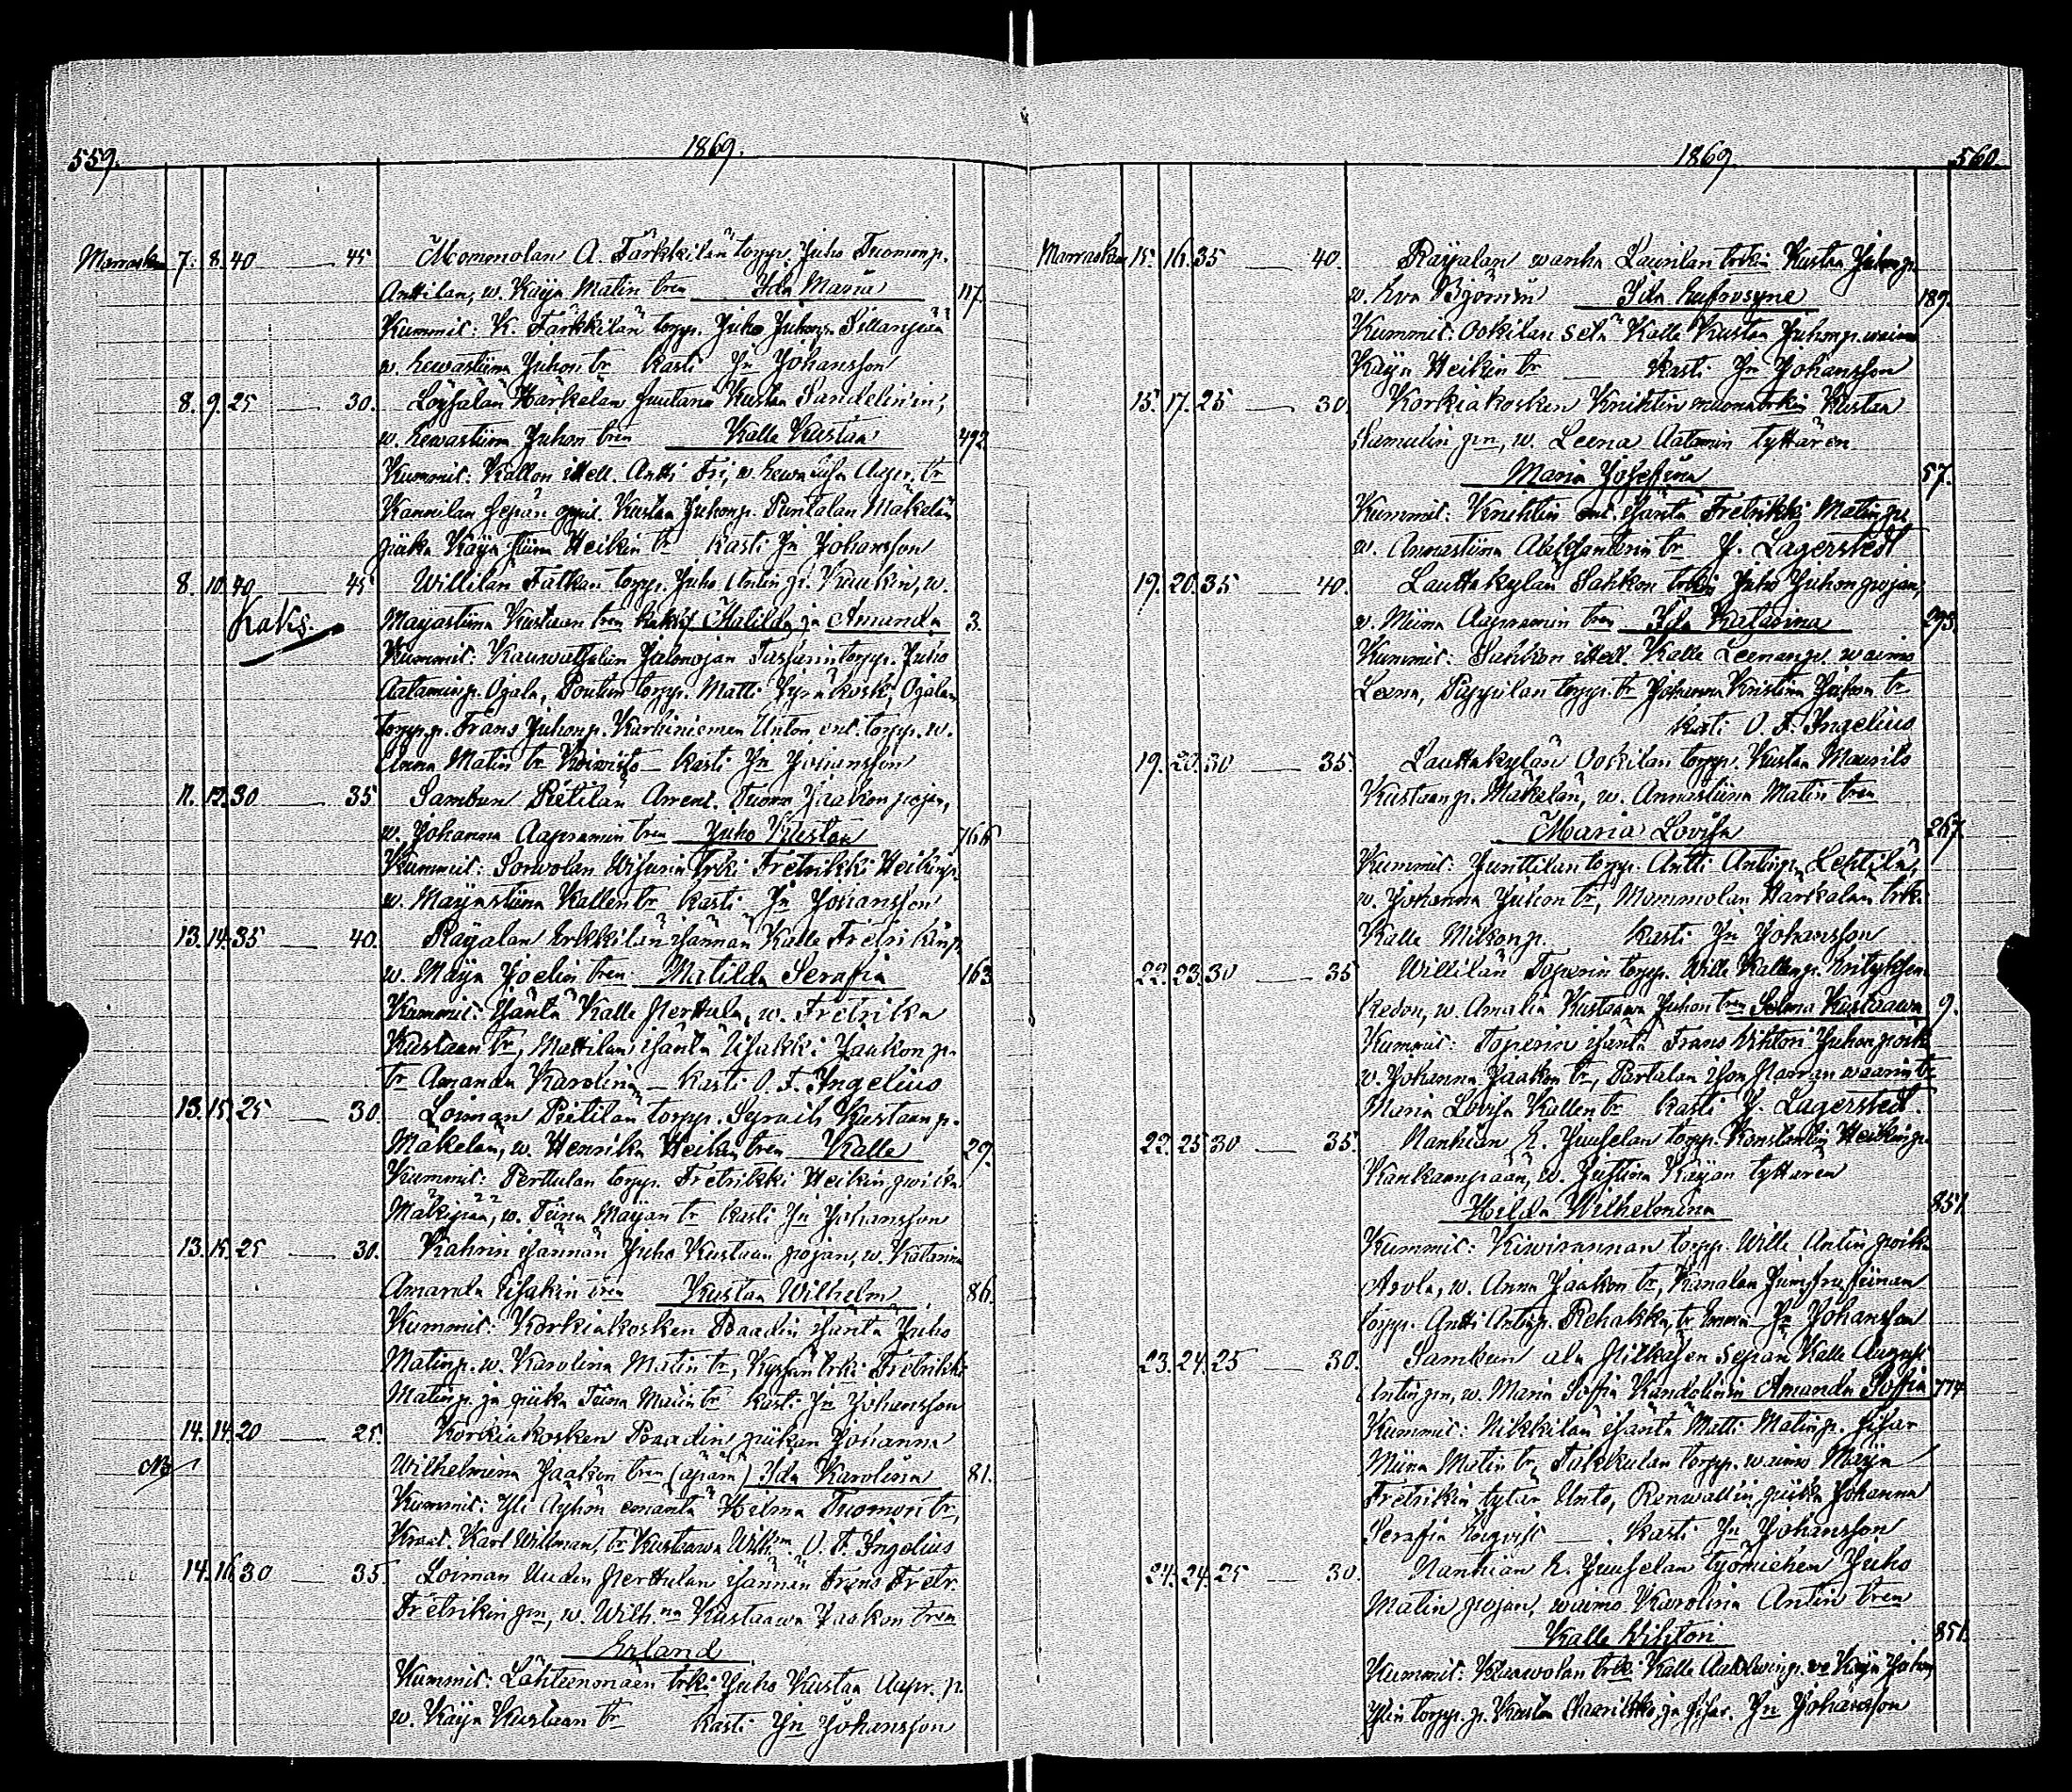 559. 1869.
Marrask. 7. 8. 40 — 45 Mommolan A. Tärkkilän torpp. Juho Tuomonp.
Anttilan, w. Kaija Matin tren Ida Maria 117.
Kummit: K. Tärkkilän torpp. Juho Juhonp. Sillanpää
w. Eewastiina Juhon tr Kasti Jn Johansson
8. 9. 25 — 30. Löysälän Härkälän Kustan Sandelinin,
w. Eewastiina Juhon tren Kalle Kustaa 492.
Kummit: Kallon itsell. Antti w. Eewa Aapr. tr
Kannilan sepän oppil. Kustaa Juhonp. Puntalan Mäkelän
piika Kaijastiina Heikin tr Kasti Jn Johansson
8. 10. 40 — 45 Willilän Tatkan torpp. Juho Antinp. Kaukin, w.
Kaks. Majastiina Kustaan tren kaksi Matilda ja Amanda 3.
Kummit: Jalonojan torpp. Juho
Aataminp. Ojala, torpp. Matti Ojalan
torpp. p. Frans Juhonp. Karhiniemen Unton ent. torpp. w.
Anna Matin tr Koiwisto — Kasti Jn Johansson
11. 12. 30 — 35 Sambun Pietilän Arrent. Tuomo Jaakon pojan,
w. Johanna Aapramin tren Juho Kustaa 766
Kummit: Sorwolan trki Fretrikki Heikinp.
w. Maijastiina Kallen tr Kasti Jn Johansson
13. 14. 35 — 40. Raijalan Erkkilän isännän Kalle Fretrikinp.
w. Maija Joelin tren Matilda Serafia 163
Kummit: Isäntä Kalle Perttula, w. Fretrika
Kustaan tr, Mattilan isäntä Iisakki Jaakonp.
tr Amanda Karolina — Kasti O. F. Ingelius
13. 15. 25 — 30. Loiman Pietilän torpp. Kustaanp.
Mäkelän, w. Henrika Heikin tren Kalle 29.
Kummit: Perttulan torpp. Fretrikki Heikin poika
Mäkipää, w. Tiina Maijan tr Kasti Jn Johansson
13. 15. 25 — 30. isännän Juho Kustaan pojan, w. Katarina
Amanda Iisakin tren Kustaa Wilhelm 86.
Kummit: Korkiakosken Praadin isäntä Juho
Matinp. w. Karolina Matin tr, trki Fretrikki
Matinp. ja piika Tiina Matin tr Kasti Jn Johansson
14. 14. 20 — 25. Korkiakosken Praadin piikan Johanna
Wilhelmina Jaakon tren (äpärä) Ida Karolina 81.
Kummit: Yli Äijhön emäntä Hilma Tuomon tr,
Karl Willman, tr Kustaawa Wilhm O. F. Ingelius
14. 16. 30 — 35. Loiman Uuden Perttulan isännän Frans Fretr.
Fretrikin pn, w. Wilh.na Kustaawa Jaakon tren
Erland
Kummit: Lähteenmäen trki Juho Kustaa Aapr. p.
w. Kaija Kustaan tr Kasti Jn Johansson
1869. 560.
Marraskuu 15. 16. 35 — 40. Raijalan wanha Laurilan trkin Kustaa Juhonp.
w. Eva Ida Eufrosyne 189.
Kummit: Ookilan setä Kalle Kustaa Juhonp. waimo
Kaija Heikin tr — Kasti Jn Johansson
15. 17. 25 — 30. Korkiakosken Knihtin muonatrkin Kustaa
Samulin pn, w. Leena Aatamin tyttären
Maria Josefina 57.
Kummit: Knihtin ent. isäntä Fretrikki Matinp.
w. Annastiina Aleksanterin tr J. Lagerstedt
19. 20. 35 — 40. Lauttakylän Sahkon trkin Juho Juhonpojan,
w. Miina Aapramin tren Ida Katarina 293.
Kummit: Sahkon itsell. Kalle Leenanp. waimo
Leena, Pappilan torpp. tr Johanna Kristina Juhon tr
Kasti O. F. Ingelius
19. 20. 30 — 35. Lauttakylän Ookilan torpp. Kustaa Maurits
Kustaanp. Mäkelän, w. Annastiina Matin tren
Maria Lovisa 267.
Kummit: Junttilan torpp. Antti Antinp. Lehtilä,
w. Johanna Juhon tr, Mommolan Härkälän trki
Kalle Mikonp. Kasti Jn Johansson
22. 23. 30 — 35 Willilän Toperin torpp. Wille Kallenp.
Kedon, w. Amalia Kustaawa Juhon tren Selma Kustaawa 9.
Kummit: Toperin isäntä Frans Wihtori Juhonpoika
w. Johanna Jaakon tr, Partalan waarin tr
Maria Lovisa Kallen tr Kasti J. Lagerstedt.
22. 25. 30 — 35. Nanhian E. Juuselan torpp. Konstantin Heikinp.
Kankaanpään, w. Justina Kaijan tyttären
Hilda Wilhelmina 851.
Kummit: Kiwirannan torpp. Wille Antin poika
w. Anna Jaakon tr, Kanalan
torpp. Antti Antinp. Rehakka, tr Emma — Jn Johansson
23. 24. 25 — 30. Sambun ala Pilkasen sepän Kalle August
Antin pn, w. Maria Sofia Kandelinin Amanda Soffia 774
Kummit: Nikkilän isäntä Matti Matinp. sisar
Miina Matin tr, Takkulan torpp. waimo Maija
Fretrikin tytär Unto, Renwallin piika Johanna
Serafia — Kasti Jn Johansson
24. 24. 25 — 30. Nanhian E. Juuselan työmiehen Juho
Matin pojan, waimo Karolina Antin tren
Kalle Wihtori 851.
Kummit: trki Kalle w. Kaija
torpp. p. Kustaa ja sisar. Jn Johansson